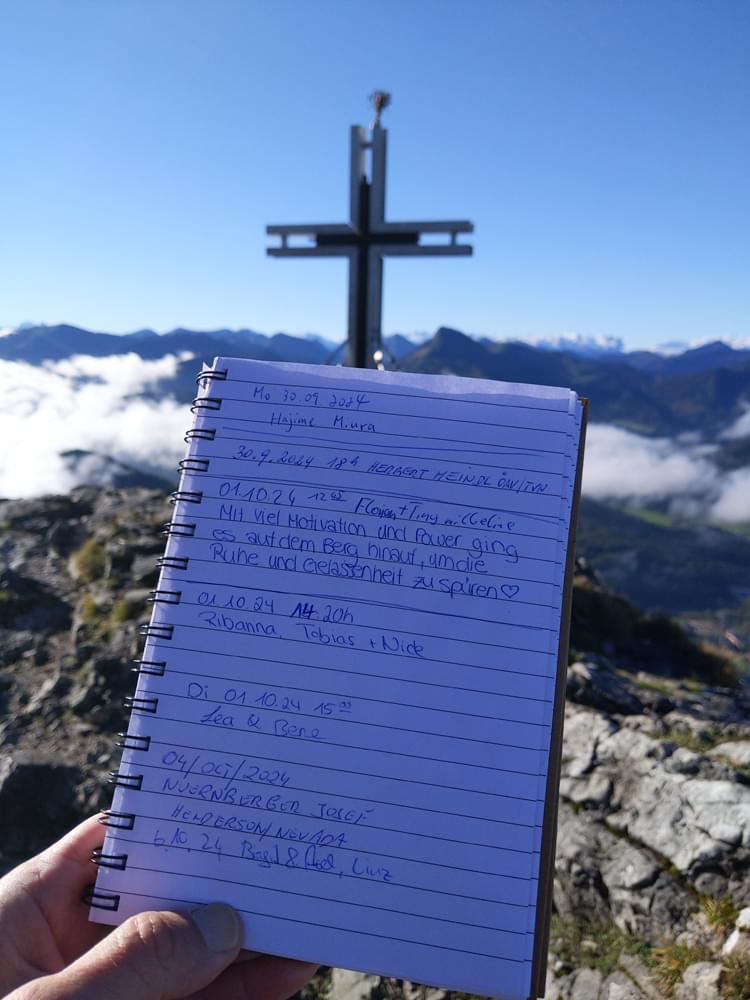 Mo 30.09.2024
Hajime Miura
30.9.2024 18h HERBERT MEINDL ÖAV/TVN
01.10.24
Mit viel Motivation und Power ging
es auf dem Berg hinauf, um die
Ruhe und Gelassenheit zu spüren♡
01.10.24 14.20h
Ribanna, Tobias + Nick
Di 01.10.24 15⁰⁰
Lea & Bene
04/OCT/2024
NUERNBERGER JOSEF
HENDERSON/NEVADA
6.10.24 & Linz